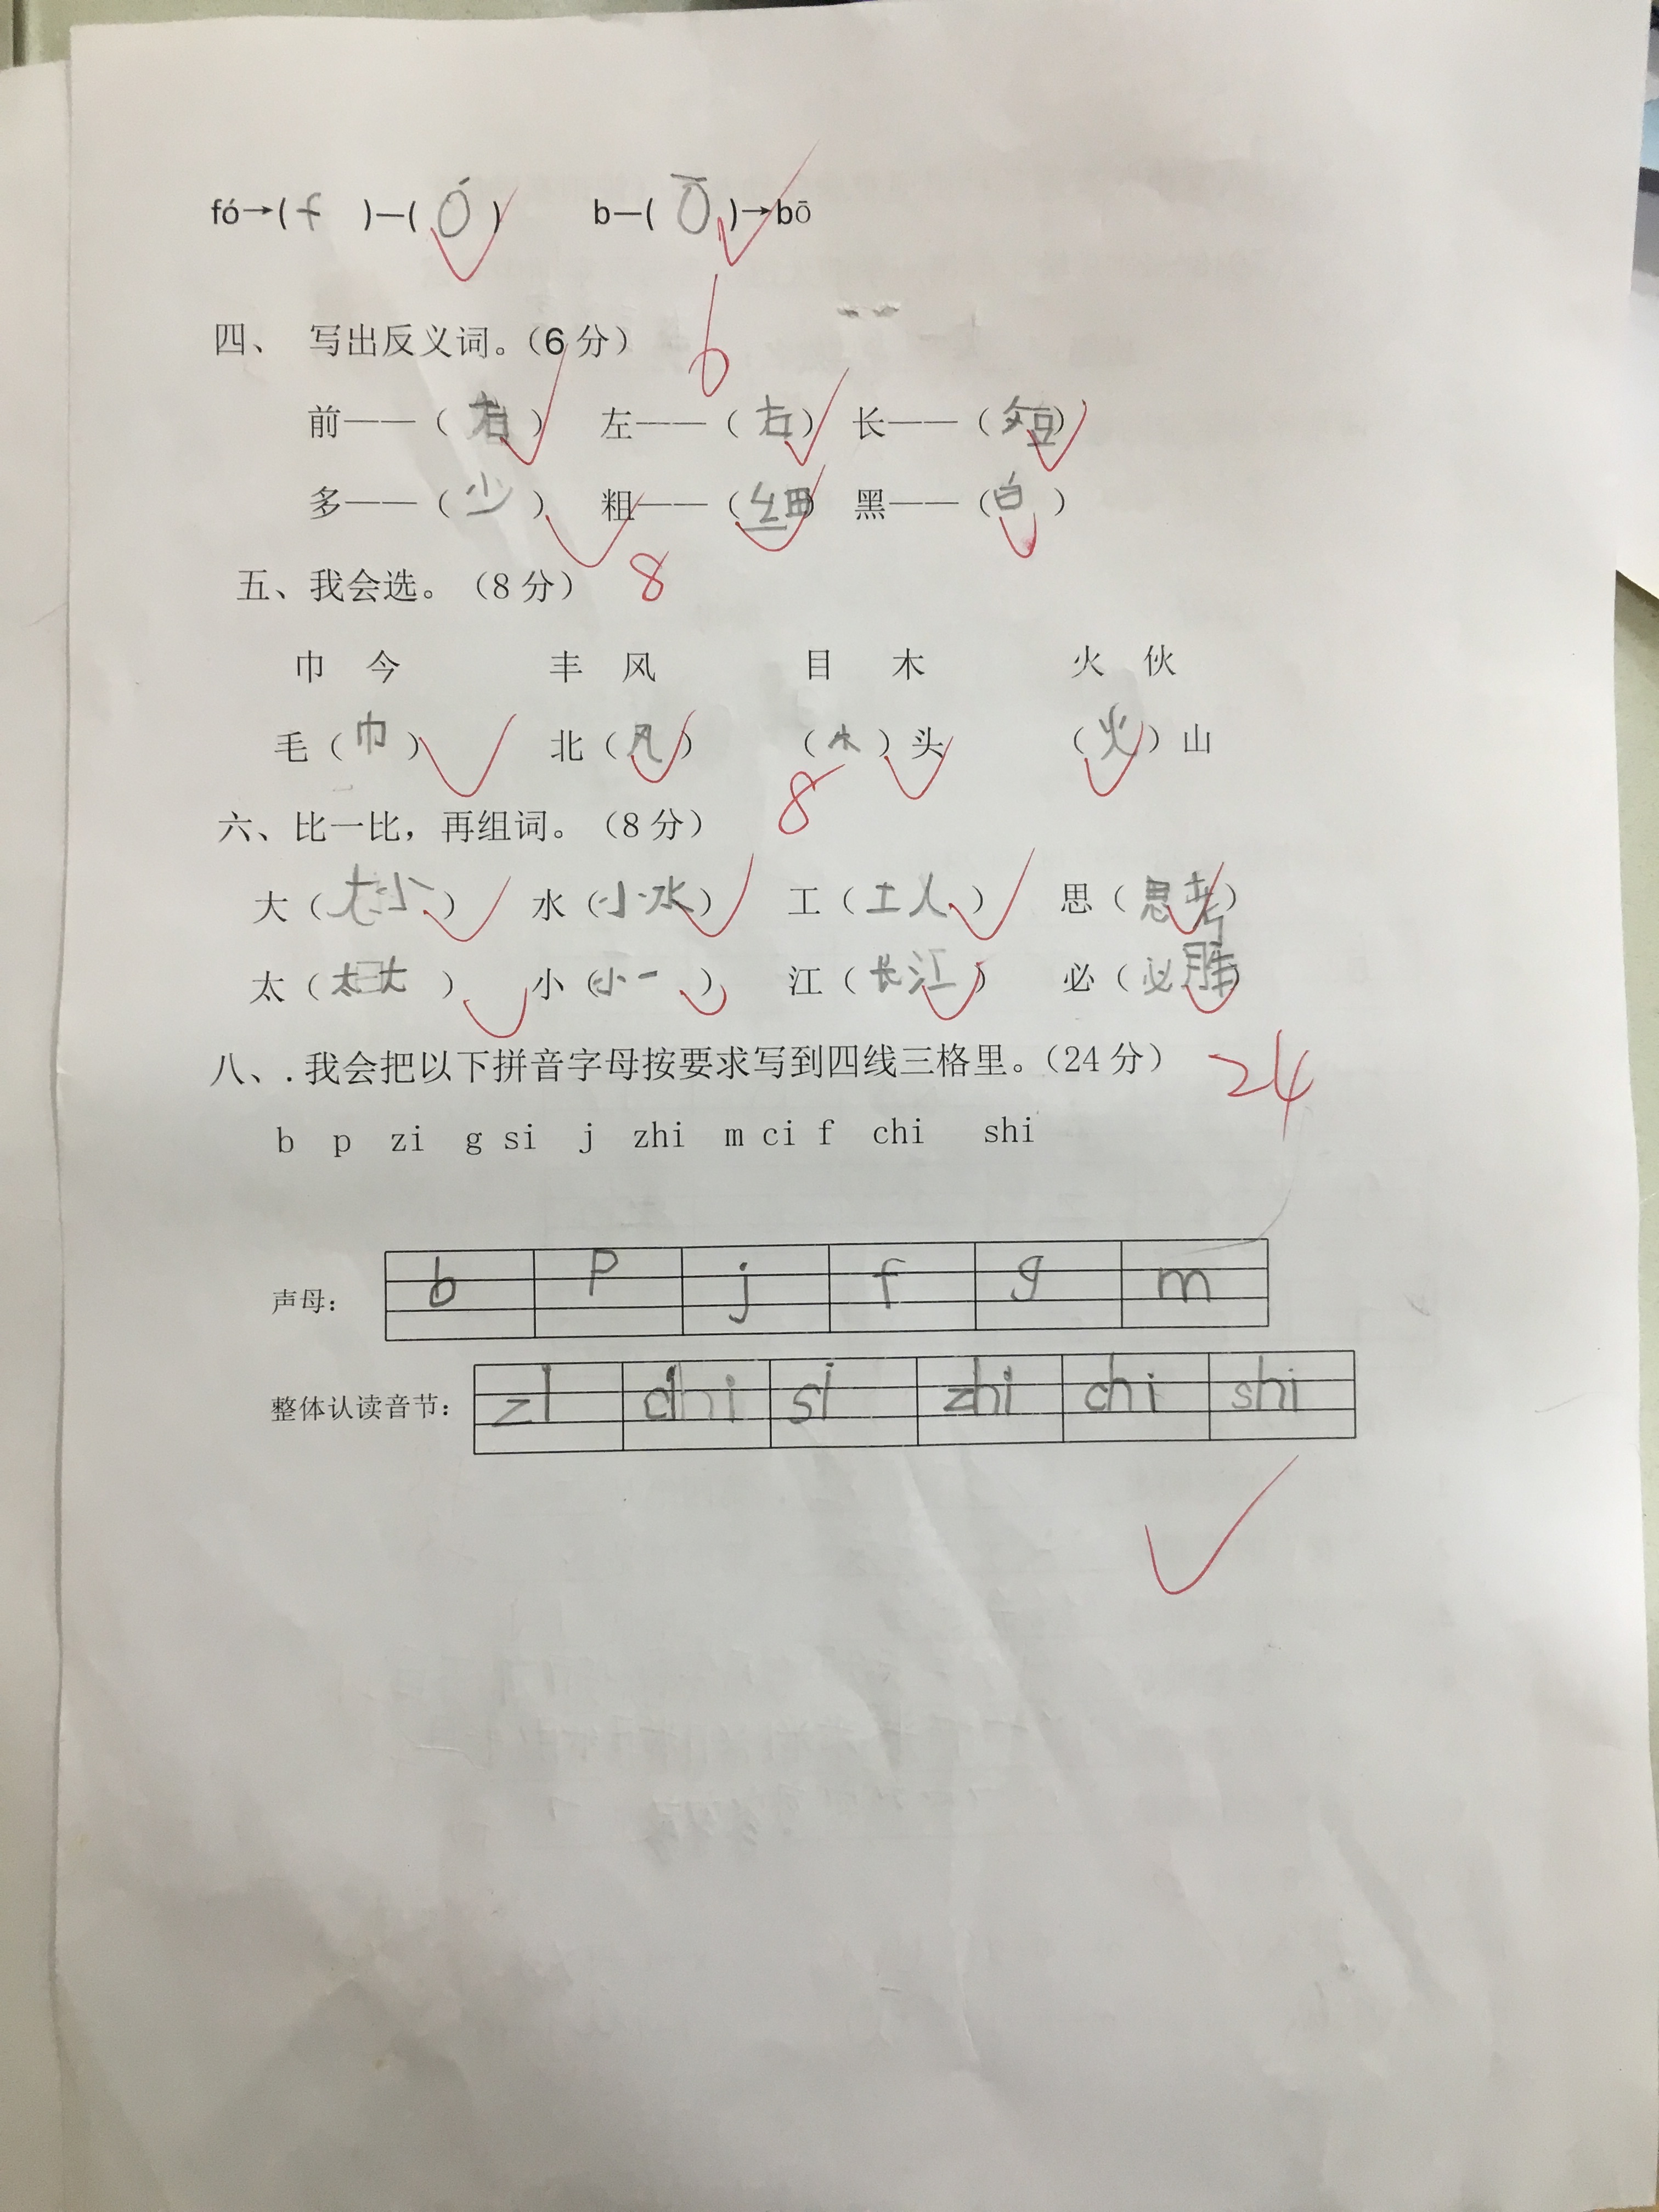 fó→( f )—( ó )    b—( ō )→bō
6
四、 写出反义词。（6分）
前——（ ）  左——（右）  长——（短）
多——（少）  粗——（细）  黑——（白）
五、我会选。（8分） 8
巾 今    丰 风    目 木    火 伙
毛（巾）  北（风）  （木）头  （火）山
六、比一比，再组词。（8分） 8
大（大小）  水（小水）  工（工人）  思（思考）
太（太大）  小（小一）  江（长江）  必（必胜）
八、.我会把以下拼音字母按要求写到四线三格里。（24分） 24
b p zi g si j zhi m ci f chi shi
声母： b p j f g m
整体认读音节： zi si zhi chi shi